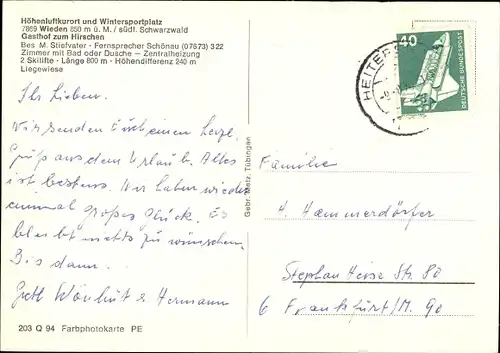 Höhenluftkurort und Wintersportplatz
7869 Wieden 850 m ü. M. / südl. Schwarzwald
Gasthof zum Hirschen
Bes. M. Stiefvater - Fernsprecher Schönau (07673) 322
Zimmer mit Bad oder Dusche - Zentralheizung
2 Skilifte · Länge 800 m - Höhendifferenz 240 m
Liegewiese
40
DEUTSCHE BUNDESPOST
HEITER
Ihr Lieben.
Wir senden Euch einen herzl.
Gruß aus dem Urlaub. Alles
ist bestens. Wir haben wieder
einmal großes Glück. Es
bleibt nichts zu wünschen.
Bis dann.
& Hermann
Gebr. Metz, Tübingen
Familie
H. Hammerdörfer
Stephan Heise Str. 80
6 Frankfurt/M. 90
203 Q 94 Farbphotokarte PE